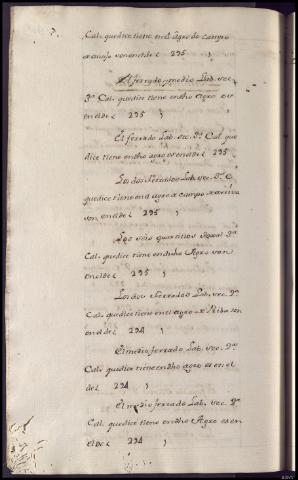 Cal. que dice tiene en el Agro do campo
x avajo van en el del 295
El ferrado y medio Lab. sec.
3ª Cal. que dice tiene en dho Agro es
en el del 295
El ferrado Lab. sec. 3ª Cal. que
dice tiene en dho agro es en el del 295
Los dos ferrados Lab. sec. 3ª C
que dice tiene en el agro x campo x arriva
son en el del 295
Los seis quartillos 3ª
Cal. que dice tiene en dicho Agro van
en el del 295
Los dos Ferrados Lab. sec. 2ª
Cal. que dice tiene en el agro x son
en el del 294
El medio ferrado Lab. sec. 2ª
Cal. que dice tiene en dho agro es en el
del 294
El medio ferrado Lab. sec. 2ª
Cal. que dice tiene en dho Agro es en
el del 294